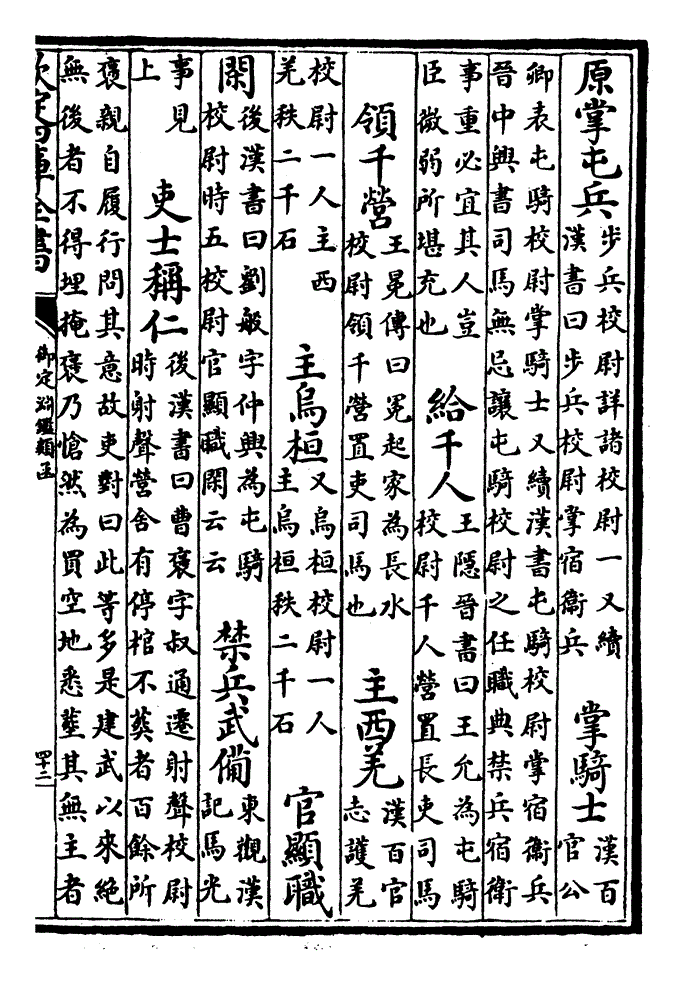 原掌屯兵步兵校尉詳諸校尉一又續漢書曰步兵校尉掌宿衞兵 掌騎士漢百官公
卿表屯騎校尉掌騎士又續漢書屯騎校尉掌宿衞兵晉中興書司馬無忌讓屯騎校尉之任職典禁兵宿衞
事重必宜其人豈臣微弱所堪充也 給千人王隱晉書曰王允為屯騎校尉千人營置長吏司馬
領千營王冕傳曰冕起家為長水校尉領千營置吏司馬也 主西羌漢百官志護羌
校尉一人主西羌秩二千石 主烏桓又烏桓校尉一人主烏桓秩二千石 官顯職
閑後漢書曰劉般字仲興為屯騎校尉時五校尉官顯職閑云云 禁兵武備東觀漢記馬光
事見上 吏士稱仁後漢書曰曹褒字叔通遷射聲校尉時射聲營舍有停棺不葬者百餘所
褒親自履行問其意故吏對曰此等多是建武以來絶無後者不得埋掩褒乃愴然為買空地悉葬其無主者
欽定四庫全書 御定淵鑑類函 四十二